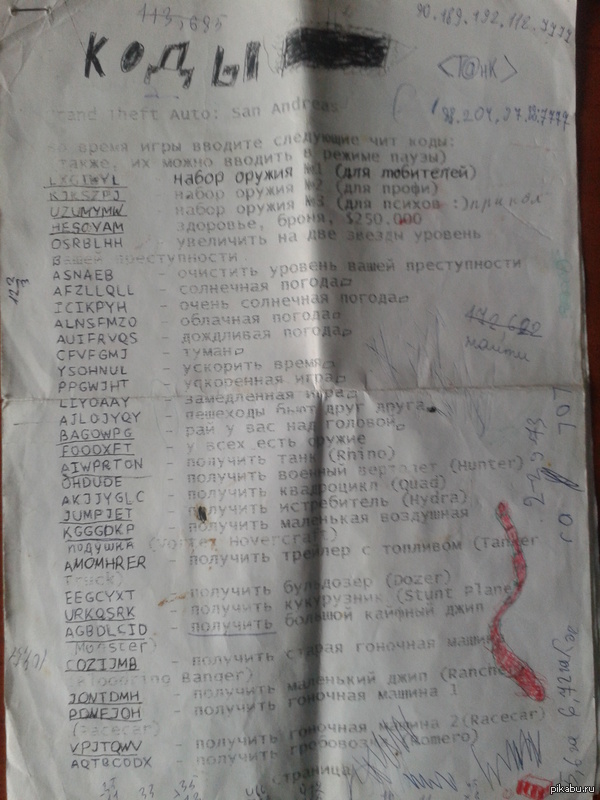 113,5685
90.189.192.112.7777
КОДЫ
<Т@нК>
98.204.37.33:7777
Grand Theft Auto: San Andreas
Во время игры вводите следующие чит коды:
также, их можно вводить в режиме паузы)
LXGIWYL - набор оружия №1 (для любителей)
KJKSZPJ - набор оружия №2 (для профи)
UZUMYMW - набор оружия №3 (для психов :)прикол
HESOYAM - здоровье, броня, $250.000
OSRBLHH - увеличить на две звезды уровень
вашей преступности
ASNAEB - очистить уровень вашей преступности
AFZLLQLL - солнечная погода
ICIKPYH - очень солнечная погода
ALNSFMZO - облачная погода
AUIFRVQS - дождливая погода
CFVFGMJ - туман
YSOHNUL - ускорить время
PPGWJHT - ускоренная игра
LIYOAAY - замедленная игра
AJLOJYQY - пешеходы бьют друг друга
BAGOWPG - рай у вас над головой
FOOOXFT - у всех есть оружие
AIWPRTON - получить танк (Rhino)
OHDUDE - получить военный вертолет (Hunter)
AKJJYGLC - получить квадроцикл (Quad)
JUMPJET - получить истребитель (Hydra)
KGGGDKP - получить маленькая воздушная
подушка (Vortex Hovercraft)
AMOMHRER - получить трейлер с топливом (Tanker
Truck)
EEGCYXT - получить бульдозер (Dozer)
URKQSRK - получить кукурузник (Stunt Plane)
AGBDLCID - получить большой кайфный джип
Monster)
CQZIJMB - получить старая гоночная машина
Bloodring Banger)
JQNTDMH - получить маленький джип (Rancher)
PDNEJOH - получить гоночная машина 1
(Racecar)
VPJTQWV - получить гоночная машина 2(Racecar)
AQTBCODX - получить гробовозка (Romero)
страница
172622
найти
pikabu.ru